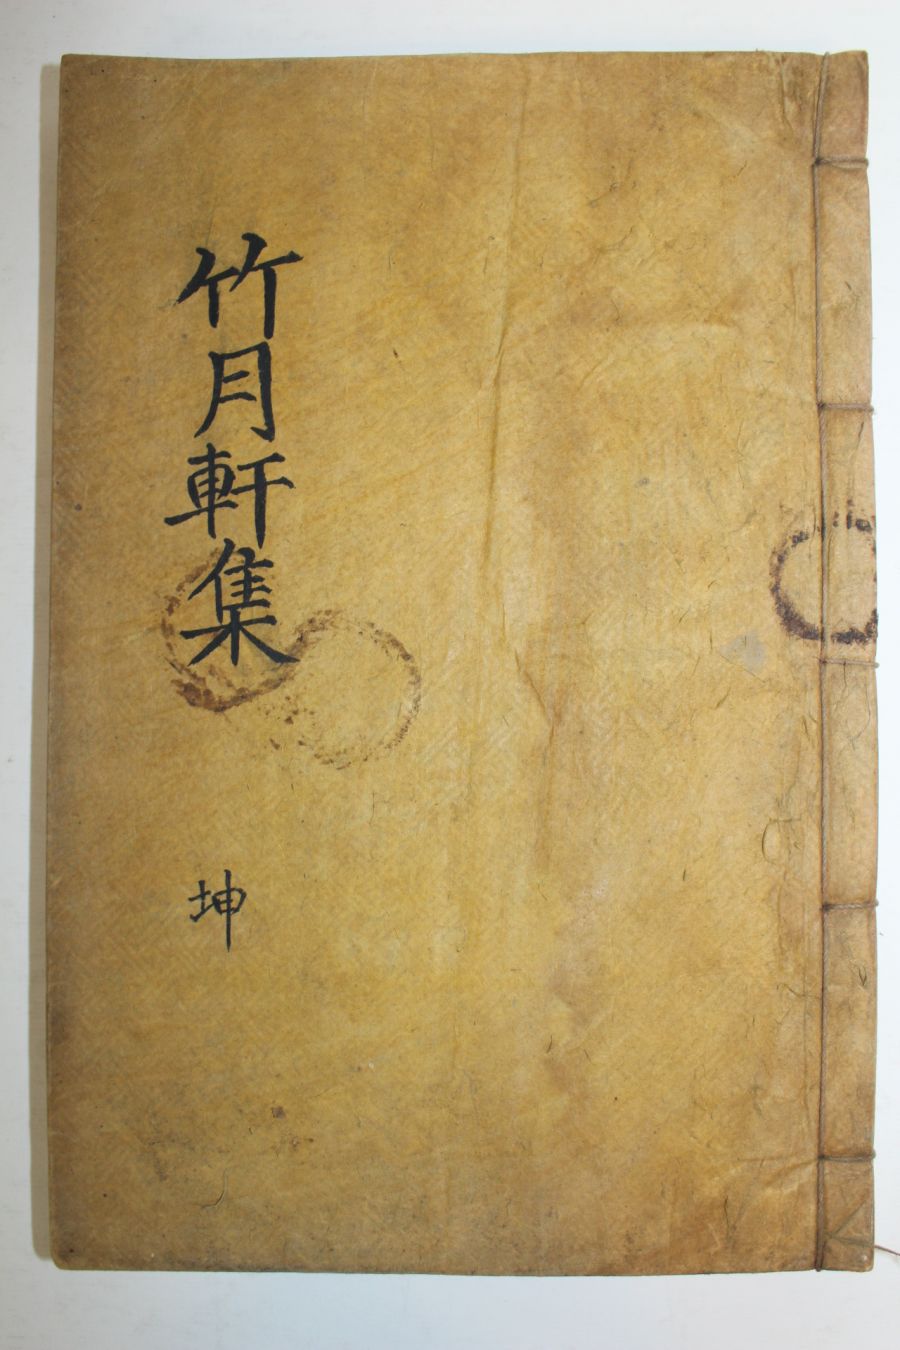 竹月軒集
坤